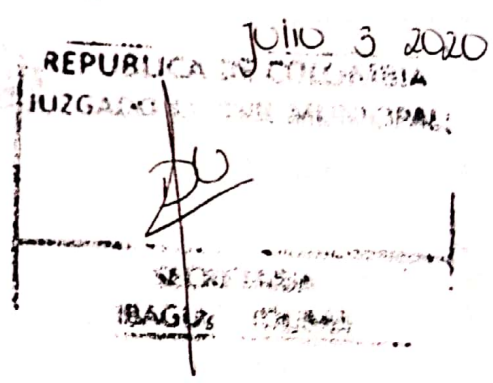 Julio 3 2020
REPUBLICA DE COLOMBIA
JUZGADO CIVIL MUNICIPAL
SECRETARIA
IBAGUE